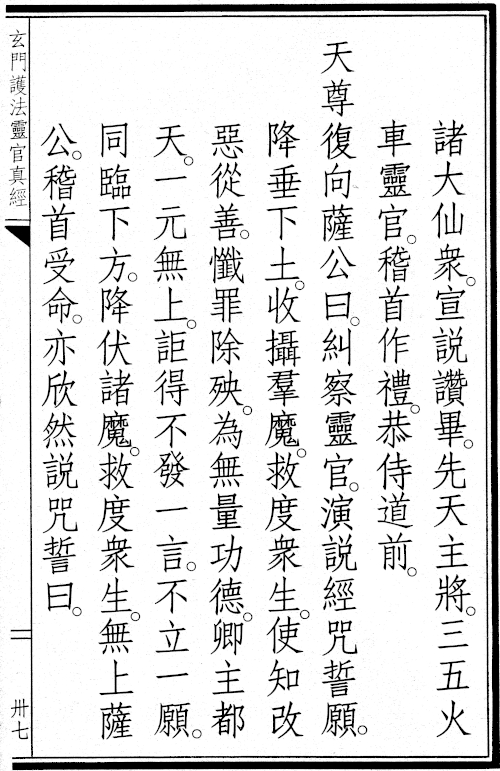 諸大仙衆。宣説讚畢。先天主將。三五火
車靈官。稽首作禮。恭侍道前。
天尊復向薩公曰。糾察靈官。演説經咒誓願。
降垂下土。收攝羣魔。救度衆生。使知改
惡從善。懺罪除殃。為無量功德。卿主都
天。一元無上。詎得不發一言。不立一願。
同臨下方。降伏諸魔。救度衆生。無上薩
公。稽首受命。亦欣然説咒誓曰。
玄門護法靈官真經
卅七